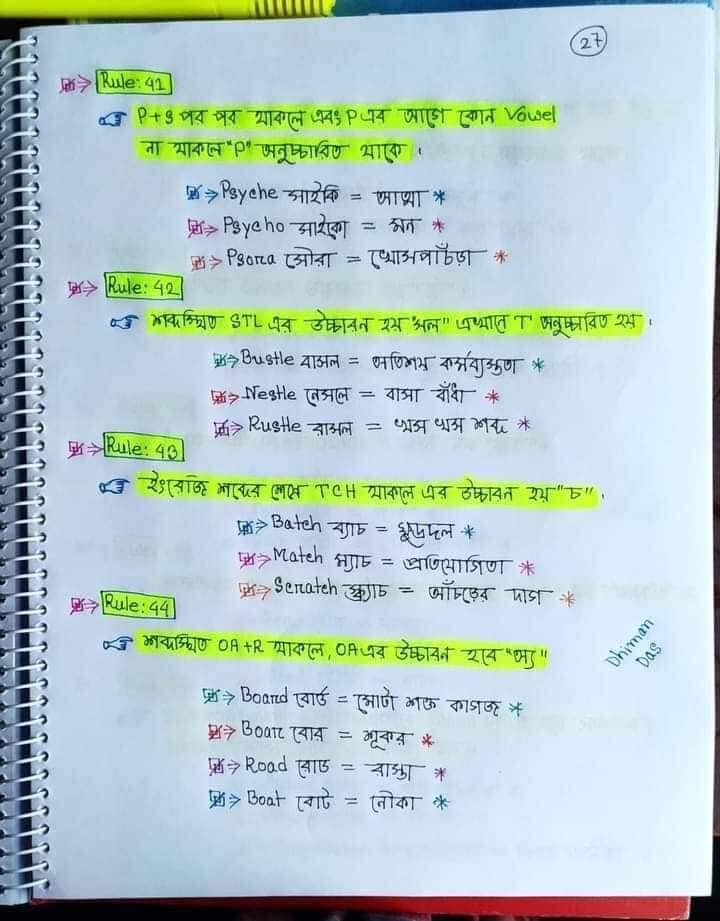 27
Rule: 41
P+S পর পর থাকলে এবং P এর আগে কোন Vowel
না থাকলে "P" অনুচ্চারিত থাকে।
Psyche সাইকি = আত্মা *
Psycho সাইকো = মন *
Psora সোরা = খোসপাঁচড়া *
Rule: 42
শব্দস্থিত STL এর উচ্চারন হয় "সল" এখানে T অনুচ্চারিত হয়।
Bustle বাসল = অতিশয় কর্মব্যস্ততা *
Nestle নেসলে = বাসা বাঁধা *
Rustle রাসল = খস খস শব্দ *
Rule: 43
ইংরেজি শব্দের শেষে TCH থাকলে এর উচ্চারন হয় "চ"।
Batch ব্যাচ = ক্ষুদ্রদল *
Match ম্যাচ = প্রতিযোগিতা *
Scratch স্ক্র্যাচ = আঁচড়ের দাগ *
Rule: 44
শব্দস্থিত OA+R থাকলে, OA এর উচ্চারন হবে "অ্য"
Board বোর্ড = মোটা শক্ত কাগজ *
Boar বোর = শূকর *
Road রোড = রাস্তা *
Boat বোট = নৌকা *
Dhiman
Das